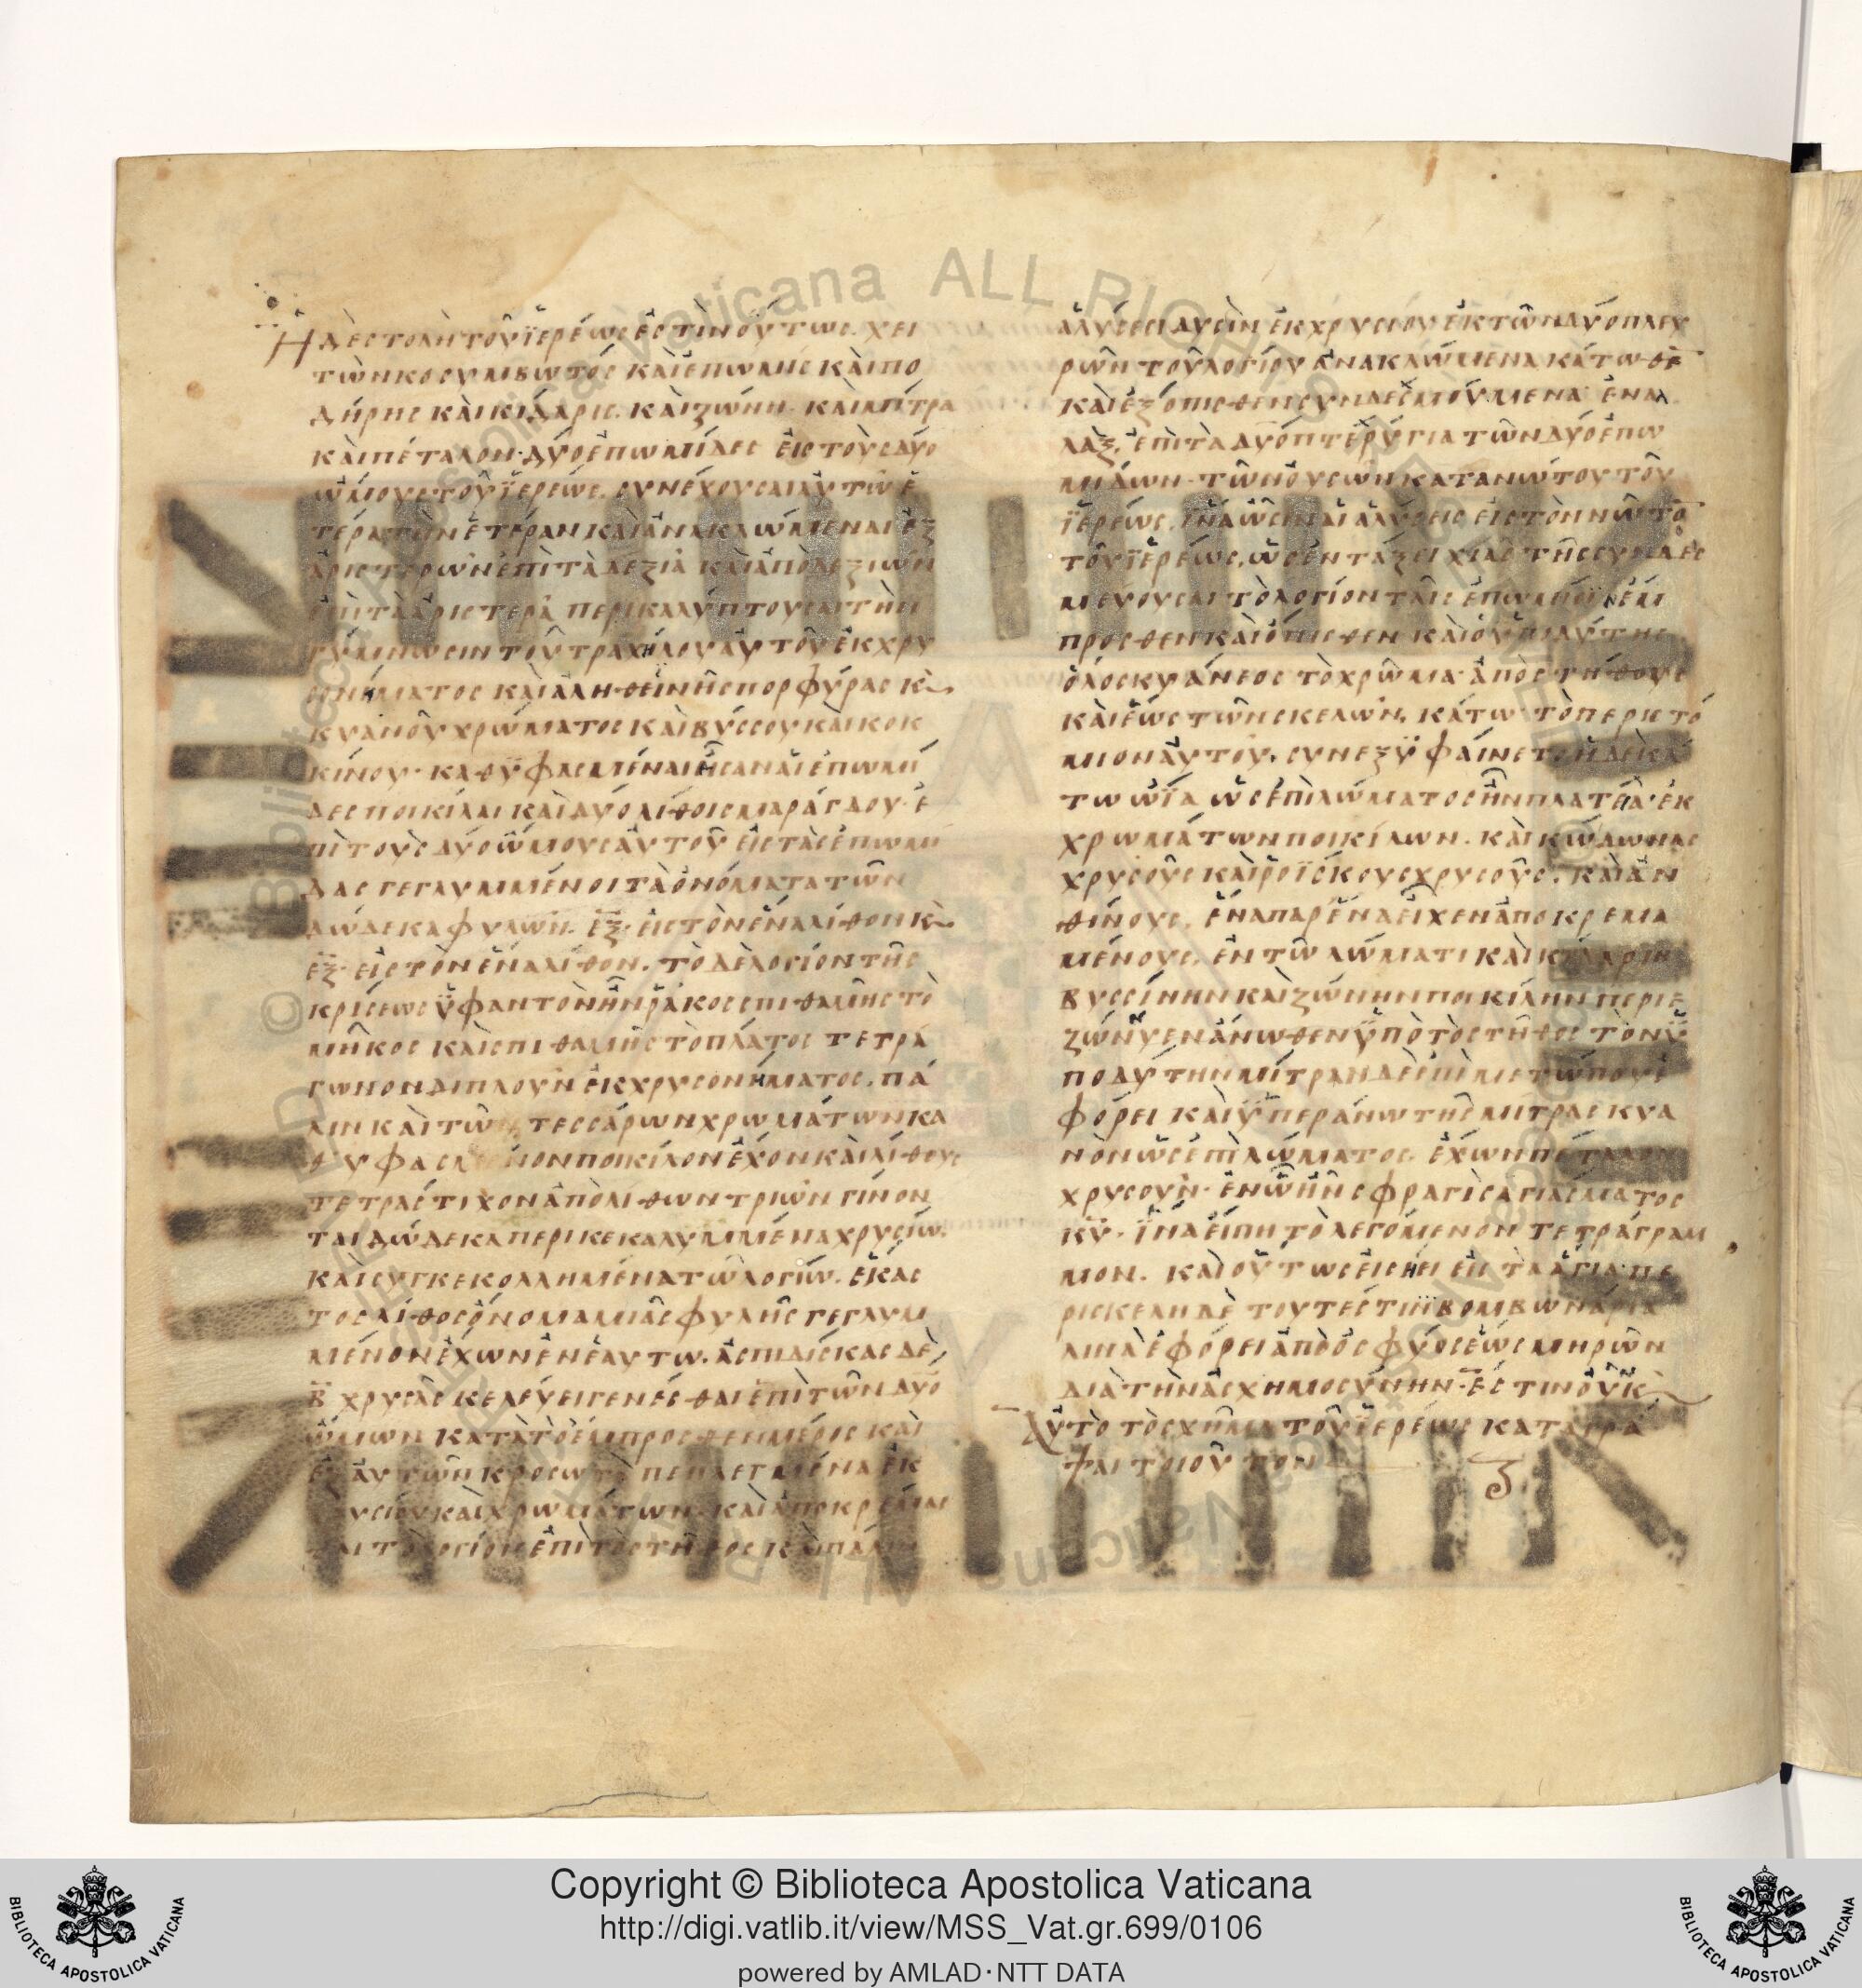 Ἡ δὲ στολὴ τοῦ ἱερέως ἐστὶν οὕτως. χει
τὼν κοσυμβωτός καὶ ἐπωμὶς καὶ πο
δήρης καὶ κίδαρις. καὶ ζώνη. καὶ μίτρα
καὶ πέταλον· δύο ἐπωμίδες εἰς τοὺς δύο
ὤμους τοῦ ἱερέως. συνέχουσαι αὐτῶ ἑ
τέρα τὴν ἑτέραν καὶ ἀνακλώμεναι ἐξ
ἀριστερῶν ἐπὶ τὰ δεξιὰ καὶ ἀπὸ δεξιῶν
ἐπὶ τὰ ἀριστερὰ περικαλύπτουσαι τὴν
γύμνωσιν τοῦ τραχήλου αὐτοῦ ἐκ χρυ
σονήματος καὶ ἀληθεινῆς πορφύρας κὲ
κυανοῦ χρώματος καὶ βύσσου καὶ κοκ
κίνου· καθυφασμέναι ἦσαν αἱ ἐπωμί
δες ποικίλαι καὶ δύο λίθοι σμαράγδου· ἐ
πὶ τοὺς δύο ὤμους αὐτοῦ εἰς τὰς ἐπωμί
δας γεγλυμμένοι τὰ ὀνόματα τῶν
δώδεκα φυλῶν. ἓξ· εἰς τὸν ἕνα λίθον κὲ
ἓξ· εἰς τὸν ἕνα λίθον. τὸ δὲ λογίον τῆς
κρίσεως ὑφαντὸν ἦν ῥάκος σπιθαμῆς τὸ
μῆκος καὶ σπιθαμῆς τὸ πλάτος τετρά
γωνον διπλοῦν ἐκ χρυσονήματος. πά
λιν καὶ τῶν τεσσάρων χρωμάτων κα
θυφασμένον ποικίλον ἔχον καὶ λίθους
τετραστιχον ἀπὸ λίθων τριῶν γίνον
ται δώδεκα περικεκαλυμμένα χρυσίω.
καὶ συγκεκολλημένα τῶ λογίω. ἕκασ
τος λίθος ὄνομα μιᾶς φυλῆς γεγλυμ
μένον ἔχων ἐν ἑαυτω. ἀσπιδίσκας δὲ,
β̅ χρυσᾶς κελεύει γενέσθαι ἐπὶ τῶν δύο
ὤμων κατὰ τὸ ἔμπροσθεν μέρος καὶ
ἐξ αὐτῶν κροσωτὰ πεπλεγμένα ἐκ
χρυσίου καὶ χρωμάτων. καὶ ἀποκρέμαν
ται τὸ λογίον ἐπὶ τὸ στῆθος καὶ πάλιν
ἁλύσεσι δυσὶν ἐκ χρυσίου ἐκ τῶν δύο πλευ
ρῶν τοῦ λογίου ἀνακλώμενα κάτωθε̅
καὶ ἐξόπισθεν συνδεσμούμενα ἐναλ
λάξ, ἐπὶ τὰ δύο πτερύγια τῶν δύο ἐπω
μίδων. τῶν οὐσων κατανώτου τοῦ
ἱερέως. ἵνα ὦσιν αἱ ἁλύσεις εἰς τὸν νῶτο̅
τοῦ ἱερέως. ὡς ἐν τάξει χιαστῆς συνδεσ
μεύουσαι τὸ λογίον ταῖς ἐπωμίσιν ἔμ
προσθεν καὶ ὄπισθεν καὶ ὁ ὑποδύτης
ὁλοσκυάνεος τὸ χρῶμα· ἀπὸ στήθους
καὶ ἕως τῶν σκελῶν. κάτω τὸ περιστό
μιον αὐτοῦ. συνεξυφαίνετο ἦ δὲ κά
τω ὠΐα ὡς ἐπὶ λώματος ἦν πλατεῖα· ἐκ
χρωμάτων ποικίλων. καὶ κώδωνας
χρυσοῦς καὶ ῥοΐσκους χρυσοῦς. καὶ ἀν
θίνους. ἕνα παρ ἕνα εἶχεν ἀποκρεμα
μένους. ἐν τῶ λώματι καὶ κίδαριν
βυσσίνην καὶ ζώνην ποικίλην περιε
ζώννυεν ἄνωθεν ὑπὸ τὸ στῆθος τὸν ὑ
ποδύτην μίτραν δὲ ἐπὶ μετώπου ἐ
φόρει καὶ ὑπεράνω τῆς μίτρας κυα
νὸν ὡς ἐπὶ λώματος. ἔχων πέταλον
χρυσοῦν· ἐν ὧ ἦν σφραγὶς ἁγιάσματος
κ̅υ̅· ἵνα εἴπη τὸ λεγόμενον τετράγραμ
μον. καὶ οὕτως εἰσήει εἰς τὰ ἅγια· πε
ρισκελῆ δὲ τουτέστιν βομβωνάρια
λινὰ ἐφόρει ἀπὸ ὀσφύος ἕως μηρῶν
διὰ τὴν ἀσχημοσύνην· ἔστιν οὖν κὲ
αὐτὸ τὸ σχῆμα τοῦ ἱερέως καταγρά
ψαι τοιοῦτον
Copyright © Biblioteca Apostolica Vaticana
http://digi.vatlib.it/view/MSS_Vat.gr.699/0106
powered by AMLAD·NTT DATA
BIBLIOTECA APOSTOLICA VATICANA
BIBLIOTECA APOSTOLICA VATICANA